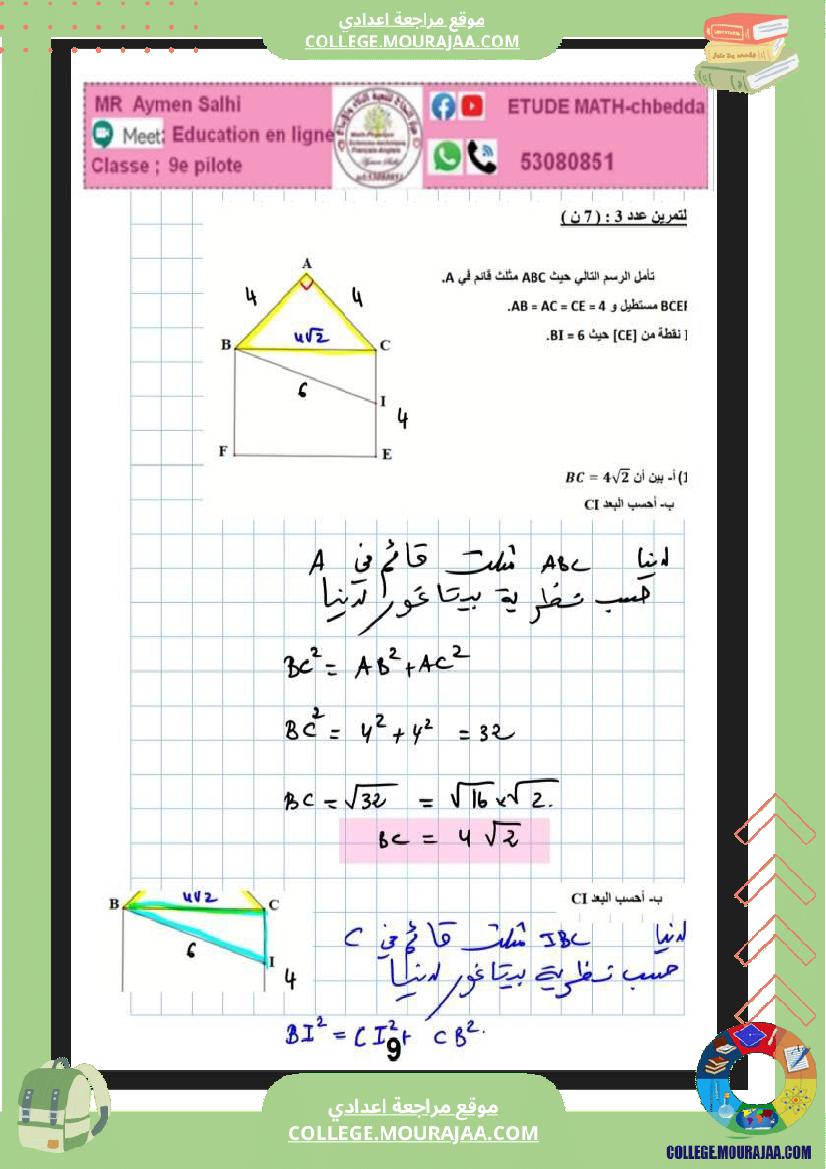 موقع مراجعة اعدادي
COLLEGE.MOURAJAA.COM
MR Aymen Salhi
Meet: Education en ligne
Classe ; 9e pilote
ETUDE MATH-chbedda
53080851
لتمرين عدد 3 : ( 7 ن )
تأمل الرسم التالي حيث ABC مثلث قائم في A.
BCEF مستطيل و AB = AC = CE = 4.
I نقطة من [CE] حيث BI = 6.
A
4 4
B 4√2 C
6 I
4
F E
1) أ- بين أن BC = 4√2
ب- أحسب البعد CI
لدينا ABC مثلث قائم في A
حسب نظرية بيتاغور لدينا
BC² = AB² + AC²
BC² = 4² + 4² = 32
BC = √32 = √16 × √2.
BC = 4√2
ب- أحسب البعد CI
B 4√2 C
6 I
4
لدينا IBC مثلث قائم في C
حسب نظرية بيتاغور لدينا
BI² = CI² + CB².
9
موقع مراجعة اعدادي
COLLEGE.MOURAJAA.COM
COLLEGE.MOURAJAA.COM